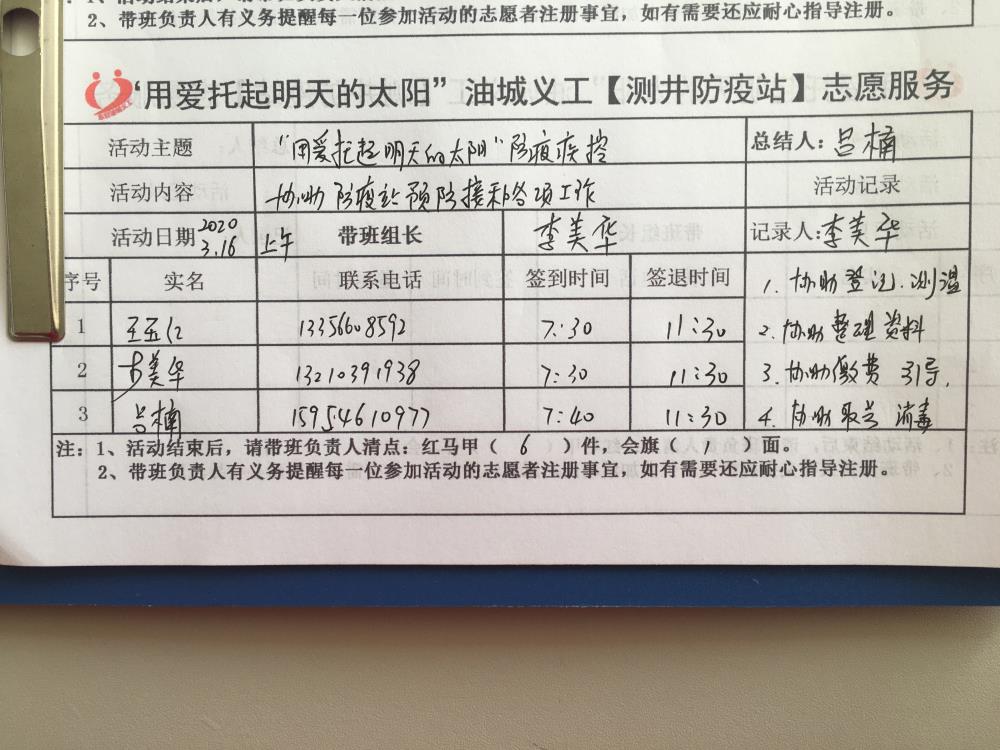 2、带班负责人有义务提醒每一位参加活动的志愿者注册事宜，如有需要还应耐心指导注册。
“用爱托起明天的太阳”油城义工【测井防疫站】志愿服务
活动主题 “用爱托起明天的太阳”防疫疾控 总结人：吕楠
活动内容 协助防疫站预防接种各项工作 活动记录
活动日期 2020 3.16 上午 带班组长 李美华 记录人：李美华
序号 实名 联系电话 签到时间 签退时间 1. 协助登记.测温
1 13356608592 7:30 11:30 2. 协助整理资料
2 李美华 13210391938 7:30 11:30 3. 协助缴费 引导.
3 吕楠 15954610977 7:40 11:30 4. 协助 消毒
注：1、活动结束后，请带班负责人清点：红马甲（ 6 ）件，会旗（ 1 ）面。
2、带班负责人有义务提醒每一位参加活动的志愿者注册事宜，如有需要还应耐心指导注册。